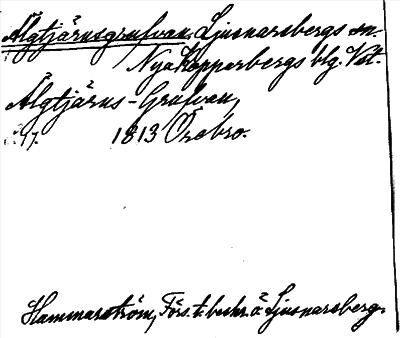 Älgtjärnsgrufvan Ljusnarsbergs sn.
Nya Kopparbergs blg. Vst.
Älgtjärns-Grufvan,
s. 17. 1813 Örebro.
Hammarström, Förs. t. beskr. ö. Ljusnarsberg.